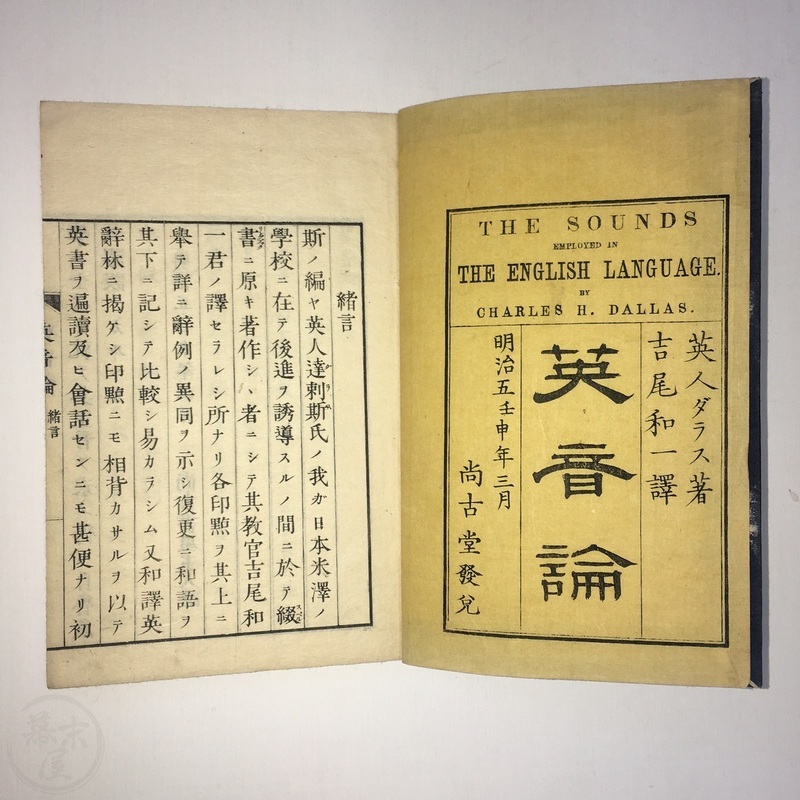 THE SOUNDS
EMPLOYED IN
THE ENGLISH LANGUAGE.
BY
CHARLES H. DALLAS.
英人ダラス著
吉尾和一譯
英音論
明治五壬申年三月
尚古堂發兌
緒言
斯ノ編ヤ英人達剌斯氏ノ我カ日本米澤ノ
學校ニ在テ後進ヲ誘導スルノ間ニ於テ綴
書ニ原キ著作シヽ者ニシテ其教官吉尾和
一君ノ譯セラレシ所ナリ各印㸃ヲ其上ニ
舉テ詳ニ辭例ノ異同ヲ示シ復更ニ和語ヲ
其下ニ記シテ比較シ易カラシム又和譯英
辭林ニ揭ケシ印㸃ニモ相背カサルヲ以テ
英書ヲ遍讀及ヒ會話センニモ甚便ナリ初
英音論 緒言
幕末屋